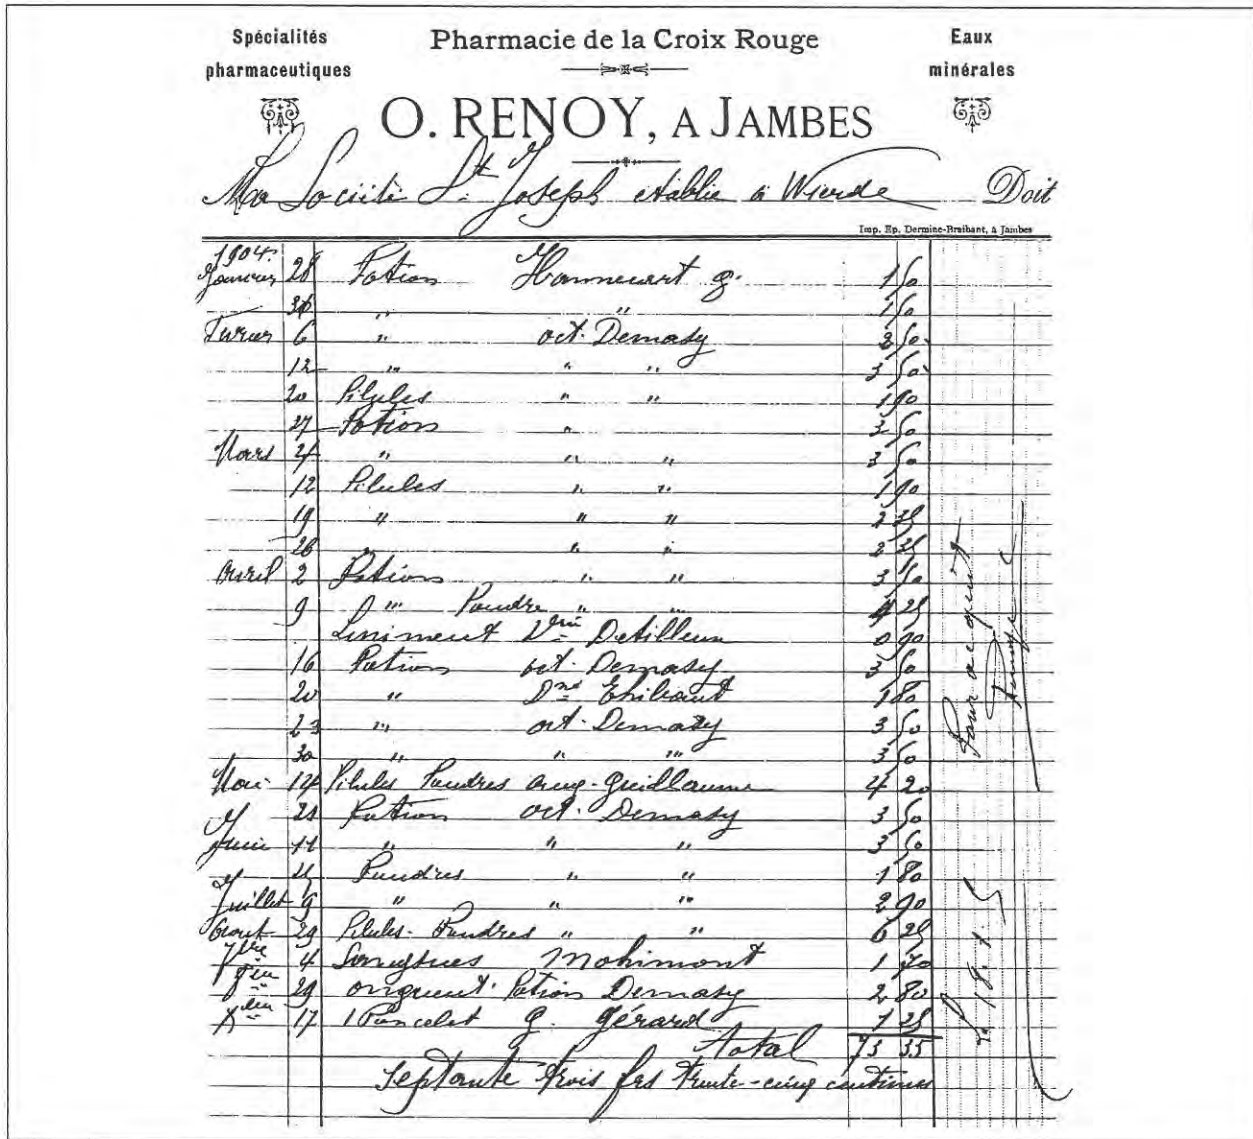 Spécialités pharmaceutiques
Pharmacie de la Croix Rouge
Eaux minérales
O. RENOY, A JAMBES
La Société St Joseph établie à Wierde Doit
Imp. Ep. Dermine-Braibant, à Jambes
1904.
Janvier 28 Potion Hannecart g. 1 50
" " 1 50
Fevrier 6 " oct. Demasy 2 50
12 " " " 3 50
20 Pilules " " 1 90
27 Potion " 3 50
Mars 4 " " " 3 50
12 Pilules " " 1 90
19 " " " 2 25
26 " " 2 25
Avril 2 Potion " " 3 50
9 " Poudre " " 4 25
Liniment Detilleux 0 90
16 Potion oct. Demasy 3 50
20 " 1 80
23 " oct. Demasy 3 50
30 " " " 3 50
Mai 14 Pilules Poudres aug. Guillaume 4 20
21 Potion oct. Demasy 3 50
Juin 11 " " " 3 50
Poudres " " 1 80
Juillet 9 " " " 2 90
Aout 29 Pilules - Poudres " " 6 25
7bre 4 Sangsues Mohimont 1 70
29 onguent. Potion Demasy 2 80
17 1 Poncelet G. Gérard 1 25
total 73 35
Septante trois frs trente-cinq centimes
Pour acquit